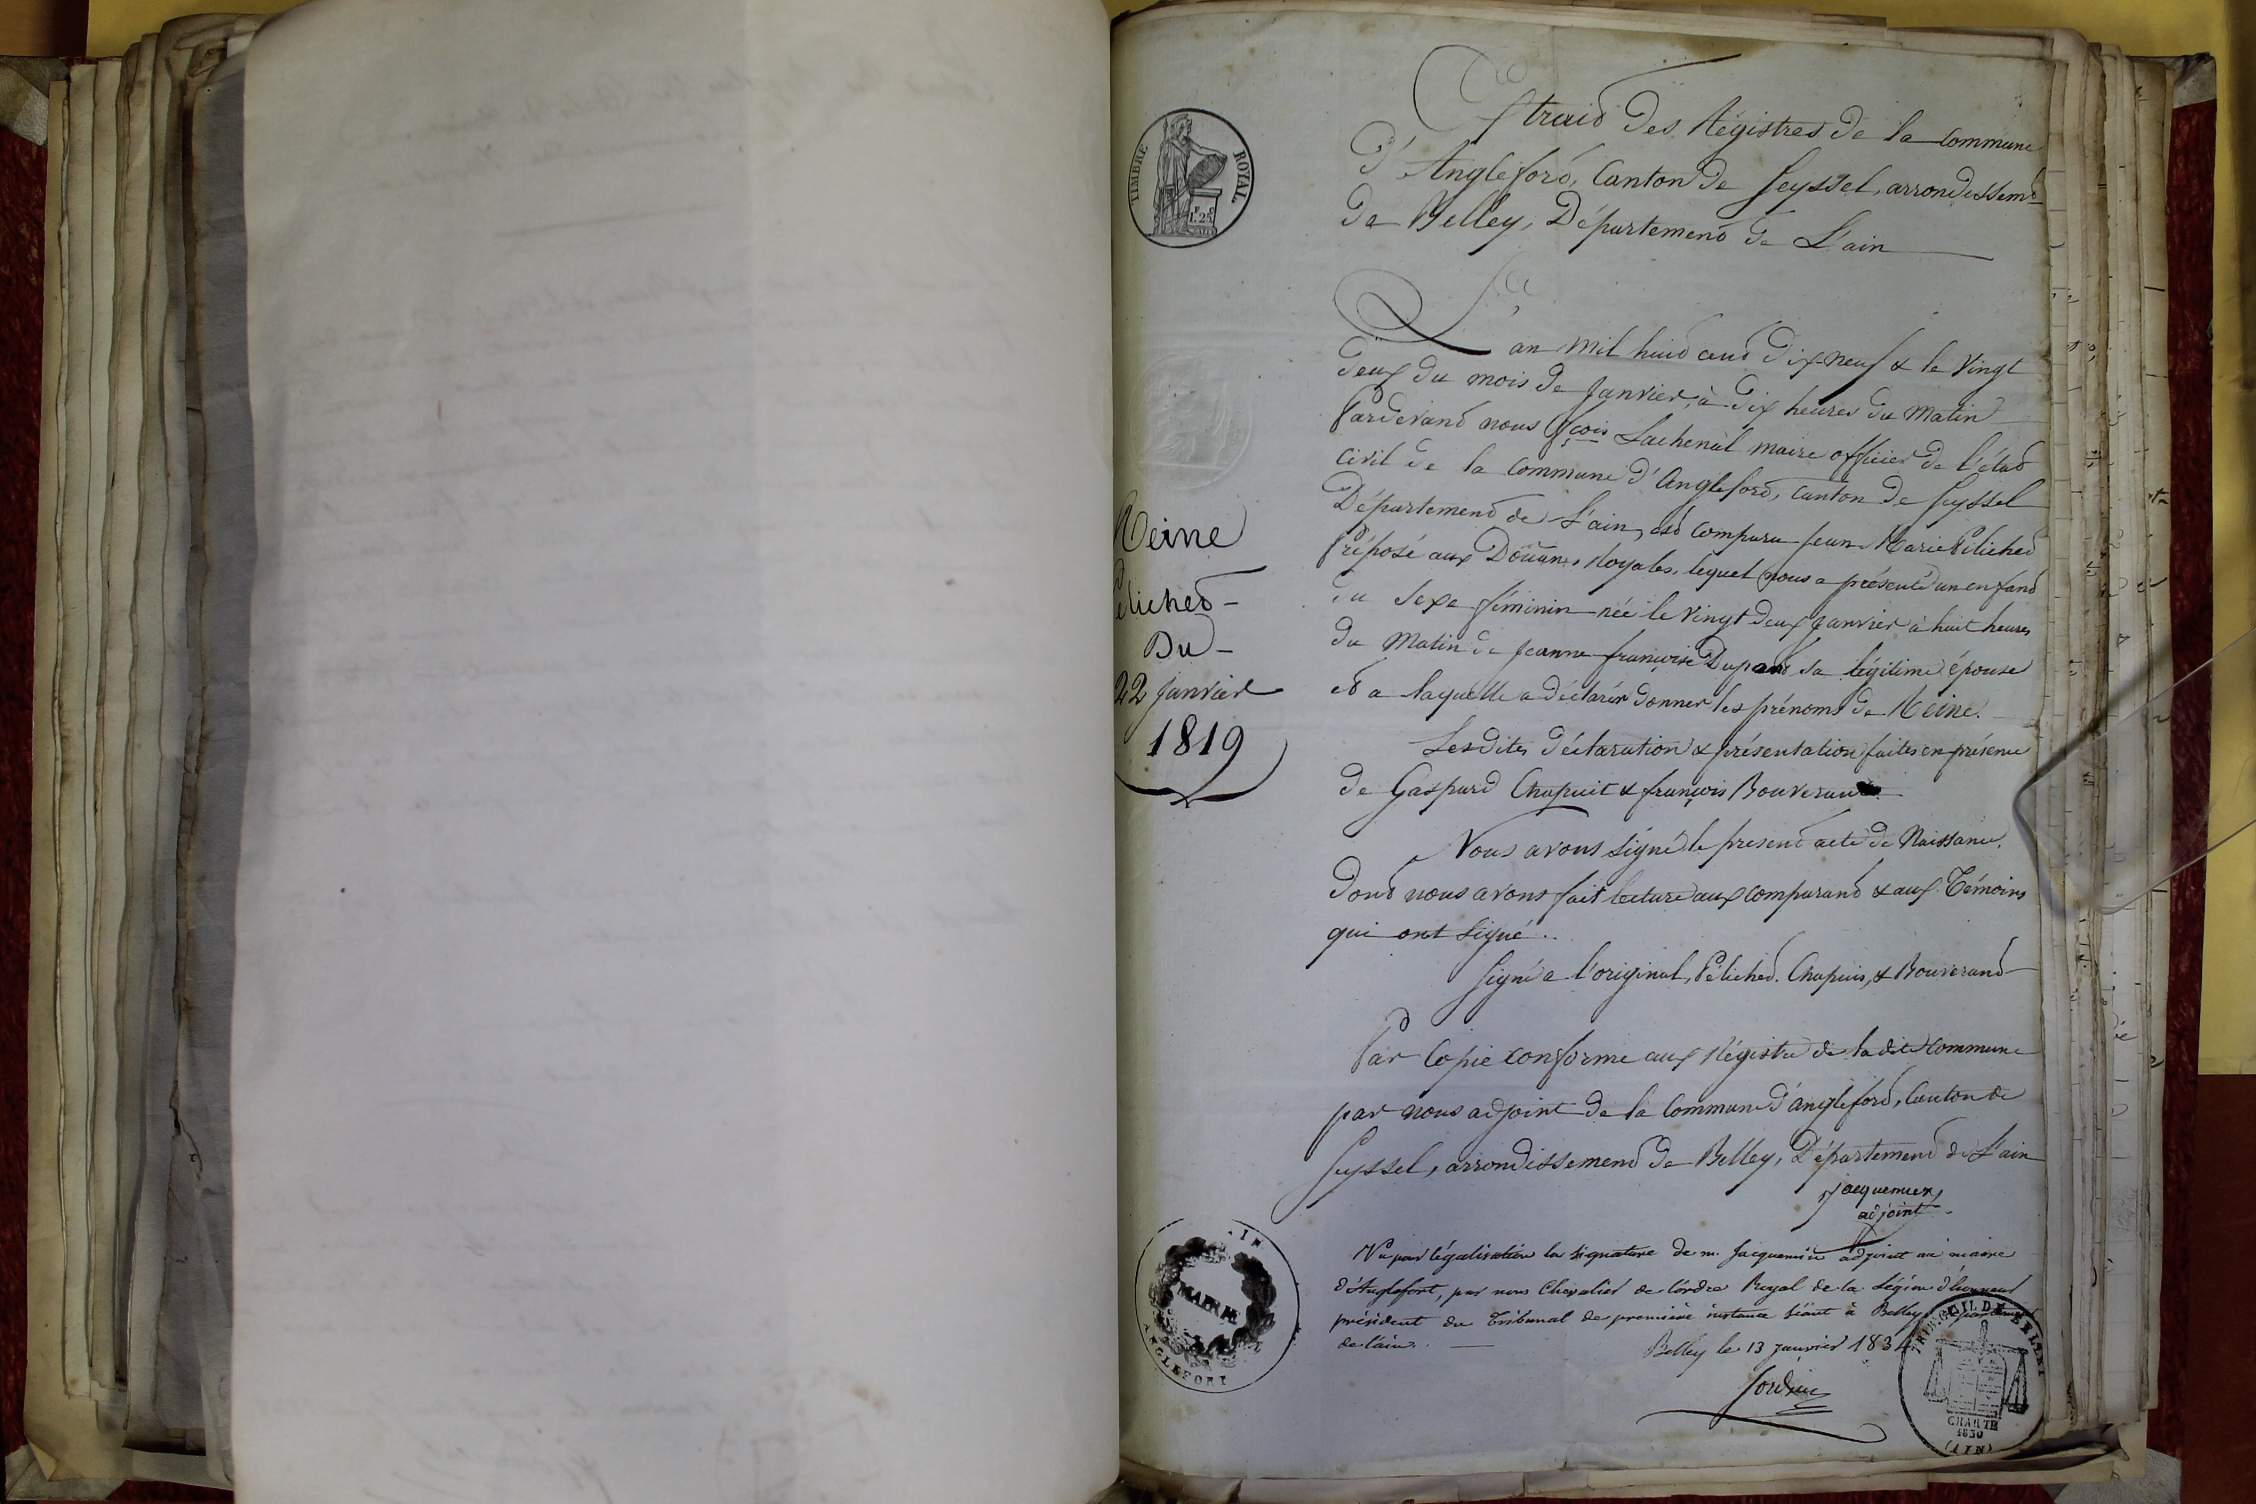 TIMBRE ROYAL
1.25
Extrait des Régistres de la commune
d'Anglefort, Canton de Seyssel, arrondissemt
de Belley, Département de L'ain
Reine
Pélichet
Du
22 Janvier
1819
L'an mil huit cent dix-neuf & le vingt
deux du mois de Janvier, à dix heures du matin
Pardevant nous fçois Lachenal maire officier de l'état
civil de la commune d'Anglefort, canton de Seyssel
Département de L'ain, est comparu Jean Marie Pélichet
Préposé aux Douanes Royales, lequel nous a présenté un enfant
du Sexe féminin née le vingt deux Janvier à huit heures
du Matin de Jeanne françoise Dupont sa légitime épouse
et a laquelle a déclarér donner les prénoms de Reine.
Lesdites déclaration & présentation faites en présence
de Gaspard Chapuit & françois Bouverand
Nous avons signé le present acte de Naissance,
dont nous avons fait lecture aux comparant & aux Témoins
qui ont signé.
Signé a l'original, Pélichet. Chapuis, & Bouverand
Par Copie conforme aux Régistre de la dite commune
par nous adjoint de la Commune d'anglefort, Canton de
Seyssel, arrondissement de Belley, Département de L'ain
Jacquemier,
adjoint
Vu par légalisation la signature de m. Jacquemier adjoint au maire
d'Anglefort, par nous Chevalier de l'ordre Royal de la Légion d'honneur
président du Tribunal de première instance séant à Belley, département
de l'ain.
Belley le 13 janvier 1834
MAIRIE
ANGLEFORT
TRIB. CIVIL DE BELLEY
CHARTE
1830
(AIN)